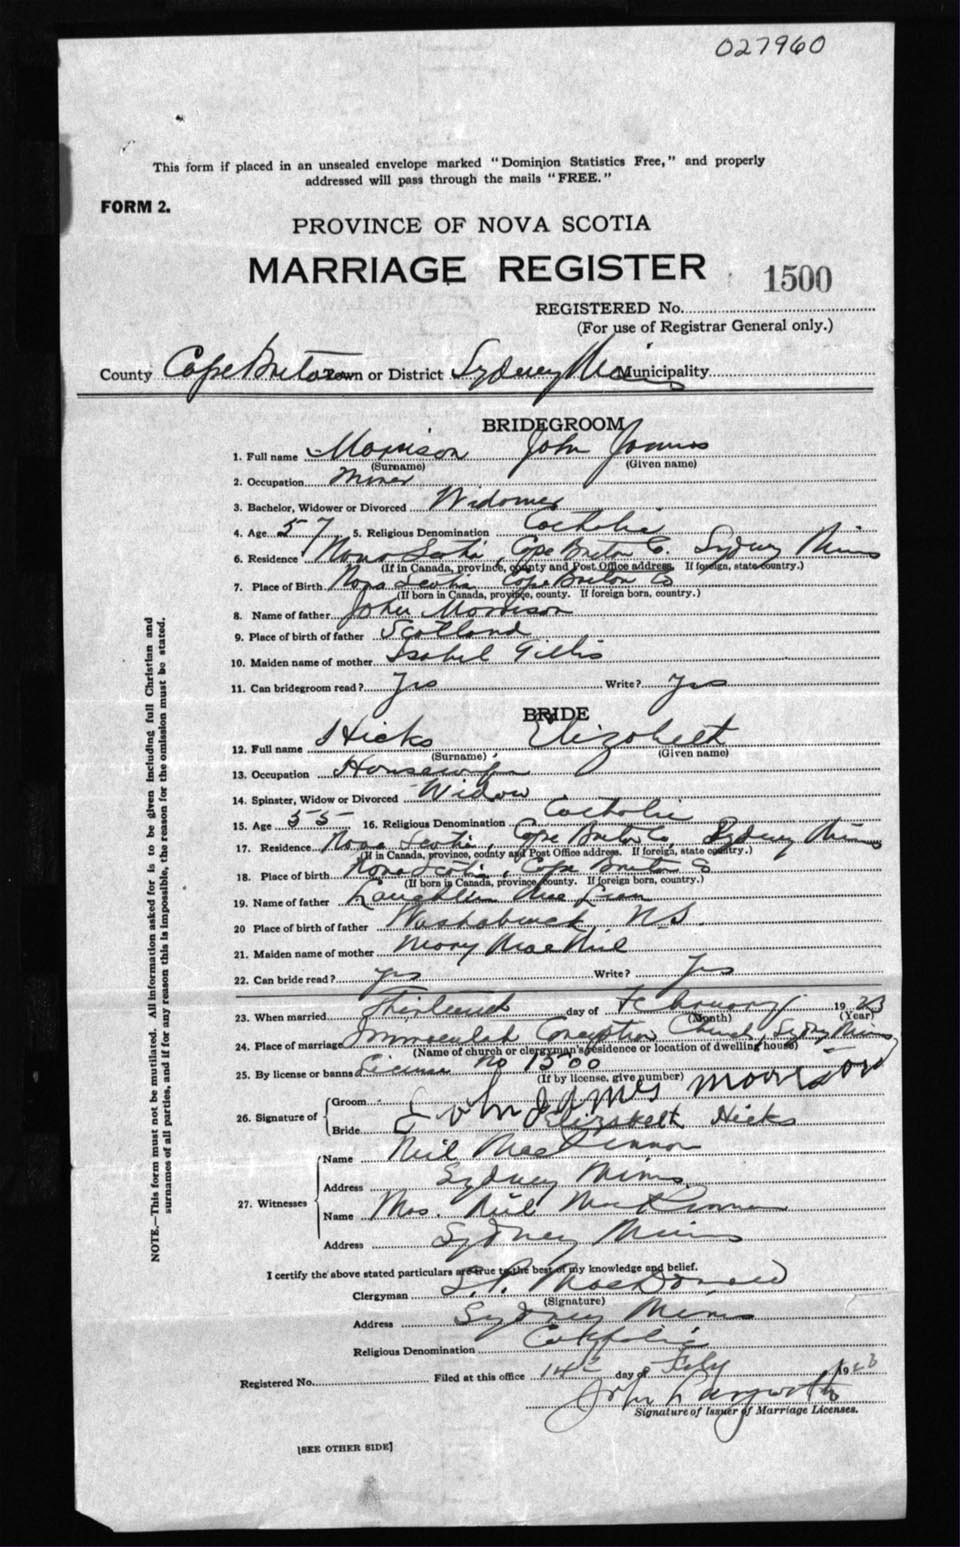 027960
This form if placed in an unsealed envelope marked "Dominion Statistics Free," and properly
addressed will pass through the mails "FREE."
FORM 2.
PROVINCE OF NOVA SCOTIA
MARRIAGE REGISTER 1500
REGISTERED No.
(For use of Registrar General only.)
County Cape Breton Town or District Sydney Mines Municipality
BRIDEGROOM
1. Full name Morrison John James
(Surname) (Given name)
2. Occupation Miner
3. Bachelor, Widower or Divorced Widower
4. Age 57 5. Religious Denomination Catholic
6. Residence Nova Scotia, Cape Breton Co. Sydney Mines
(If in Canada, province, county and Post Office address. If foreign, state country.)
7. Place of Birth Nova Scotia Cape Breton Co
(If born in Canada, province, county. If foreign born, country.)
8. Name of father John Morrison
9. Place of birth of father Scotland
10. Maiden name of mother Isabel Gillis
11. Can bridegroom read? Yes Write? Yes
BRIDE
12. Full name Hicks Elizabeth
(Surname) (Given name)
13. Occupation Housewife
14. Spinster, Widow or Divorced Widow
15. Age 55 16. Religious Denomination Catholic
17. Residence Nova Scotia, Cape Breton Co, Sydney Mines
(If in Canada, province, county and Post Office address. If foreign, state country.)
18. Place of birth Nova Scotia, Cape Breton Co
(If born in Canada, province, county. If foreign born, country.)
19. Name of father Laughlin MacLean
20 Place of birth of father Washabuck N.S.
21. Maiden name of mother Mary MacNeil
22. Can bride read? yes Write? Yes
23. When married Thirteenth day of February 1923
(Month) (Year)
24. Place of marriage Immaculate Conception Church, Sydney Mines
(Name of church or clergyman's residence or location of dwelling house)
25. By license or banns License No 1500
(If by license, give number)
26. Signature of Groom John James Morrison
Bride Elizabeth Hicks
27. Witnesses Name Neil MacKinnon
Address Sydney Mines
Name Mrs. Neil MacKinnon
Address Sydney Mines
I certify the above stated particulars are true to the best of my knowledge and belief.
Clergyman MacDonald
(Signature)
Address Sydney Mines
Religious Denomination Catholic
Registered No. Filed at this office 14 day of Feby 1923
John
Signature of Issuer of Marriage Licenses.
[SEE OTHER SIDE]
NOTE.—This form must not be mutilated. All information asked for is to be given including full Christian and
surnames of all parties, and if for any reason this is impossible, the reason for the omission must be stated.